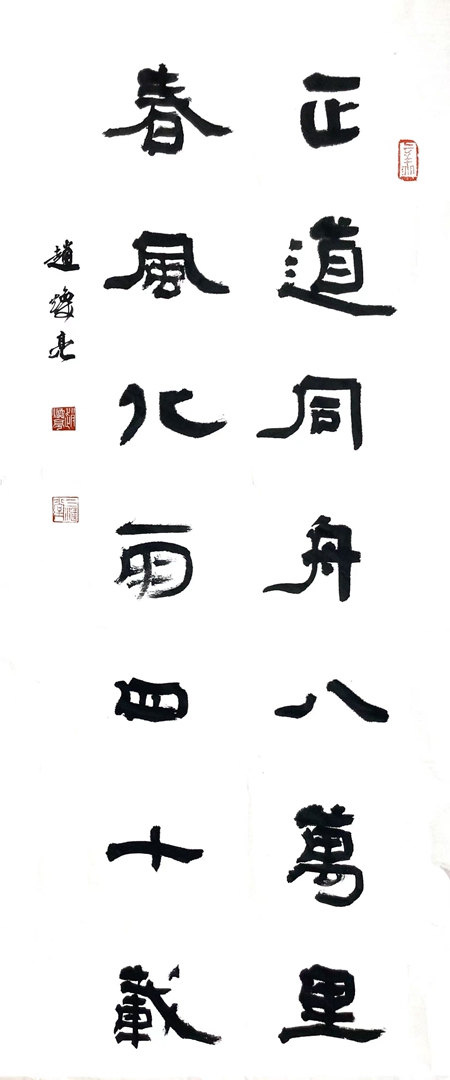 正道同舟八萬里
春風化雨四十載
趙煥亮